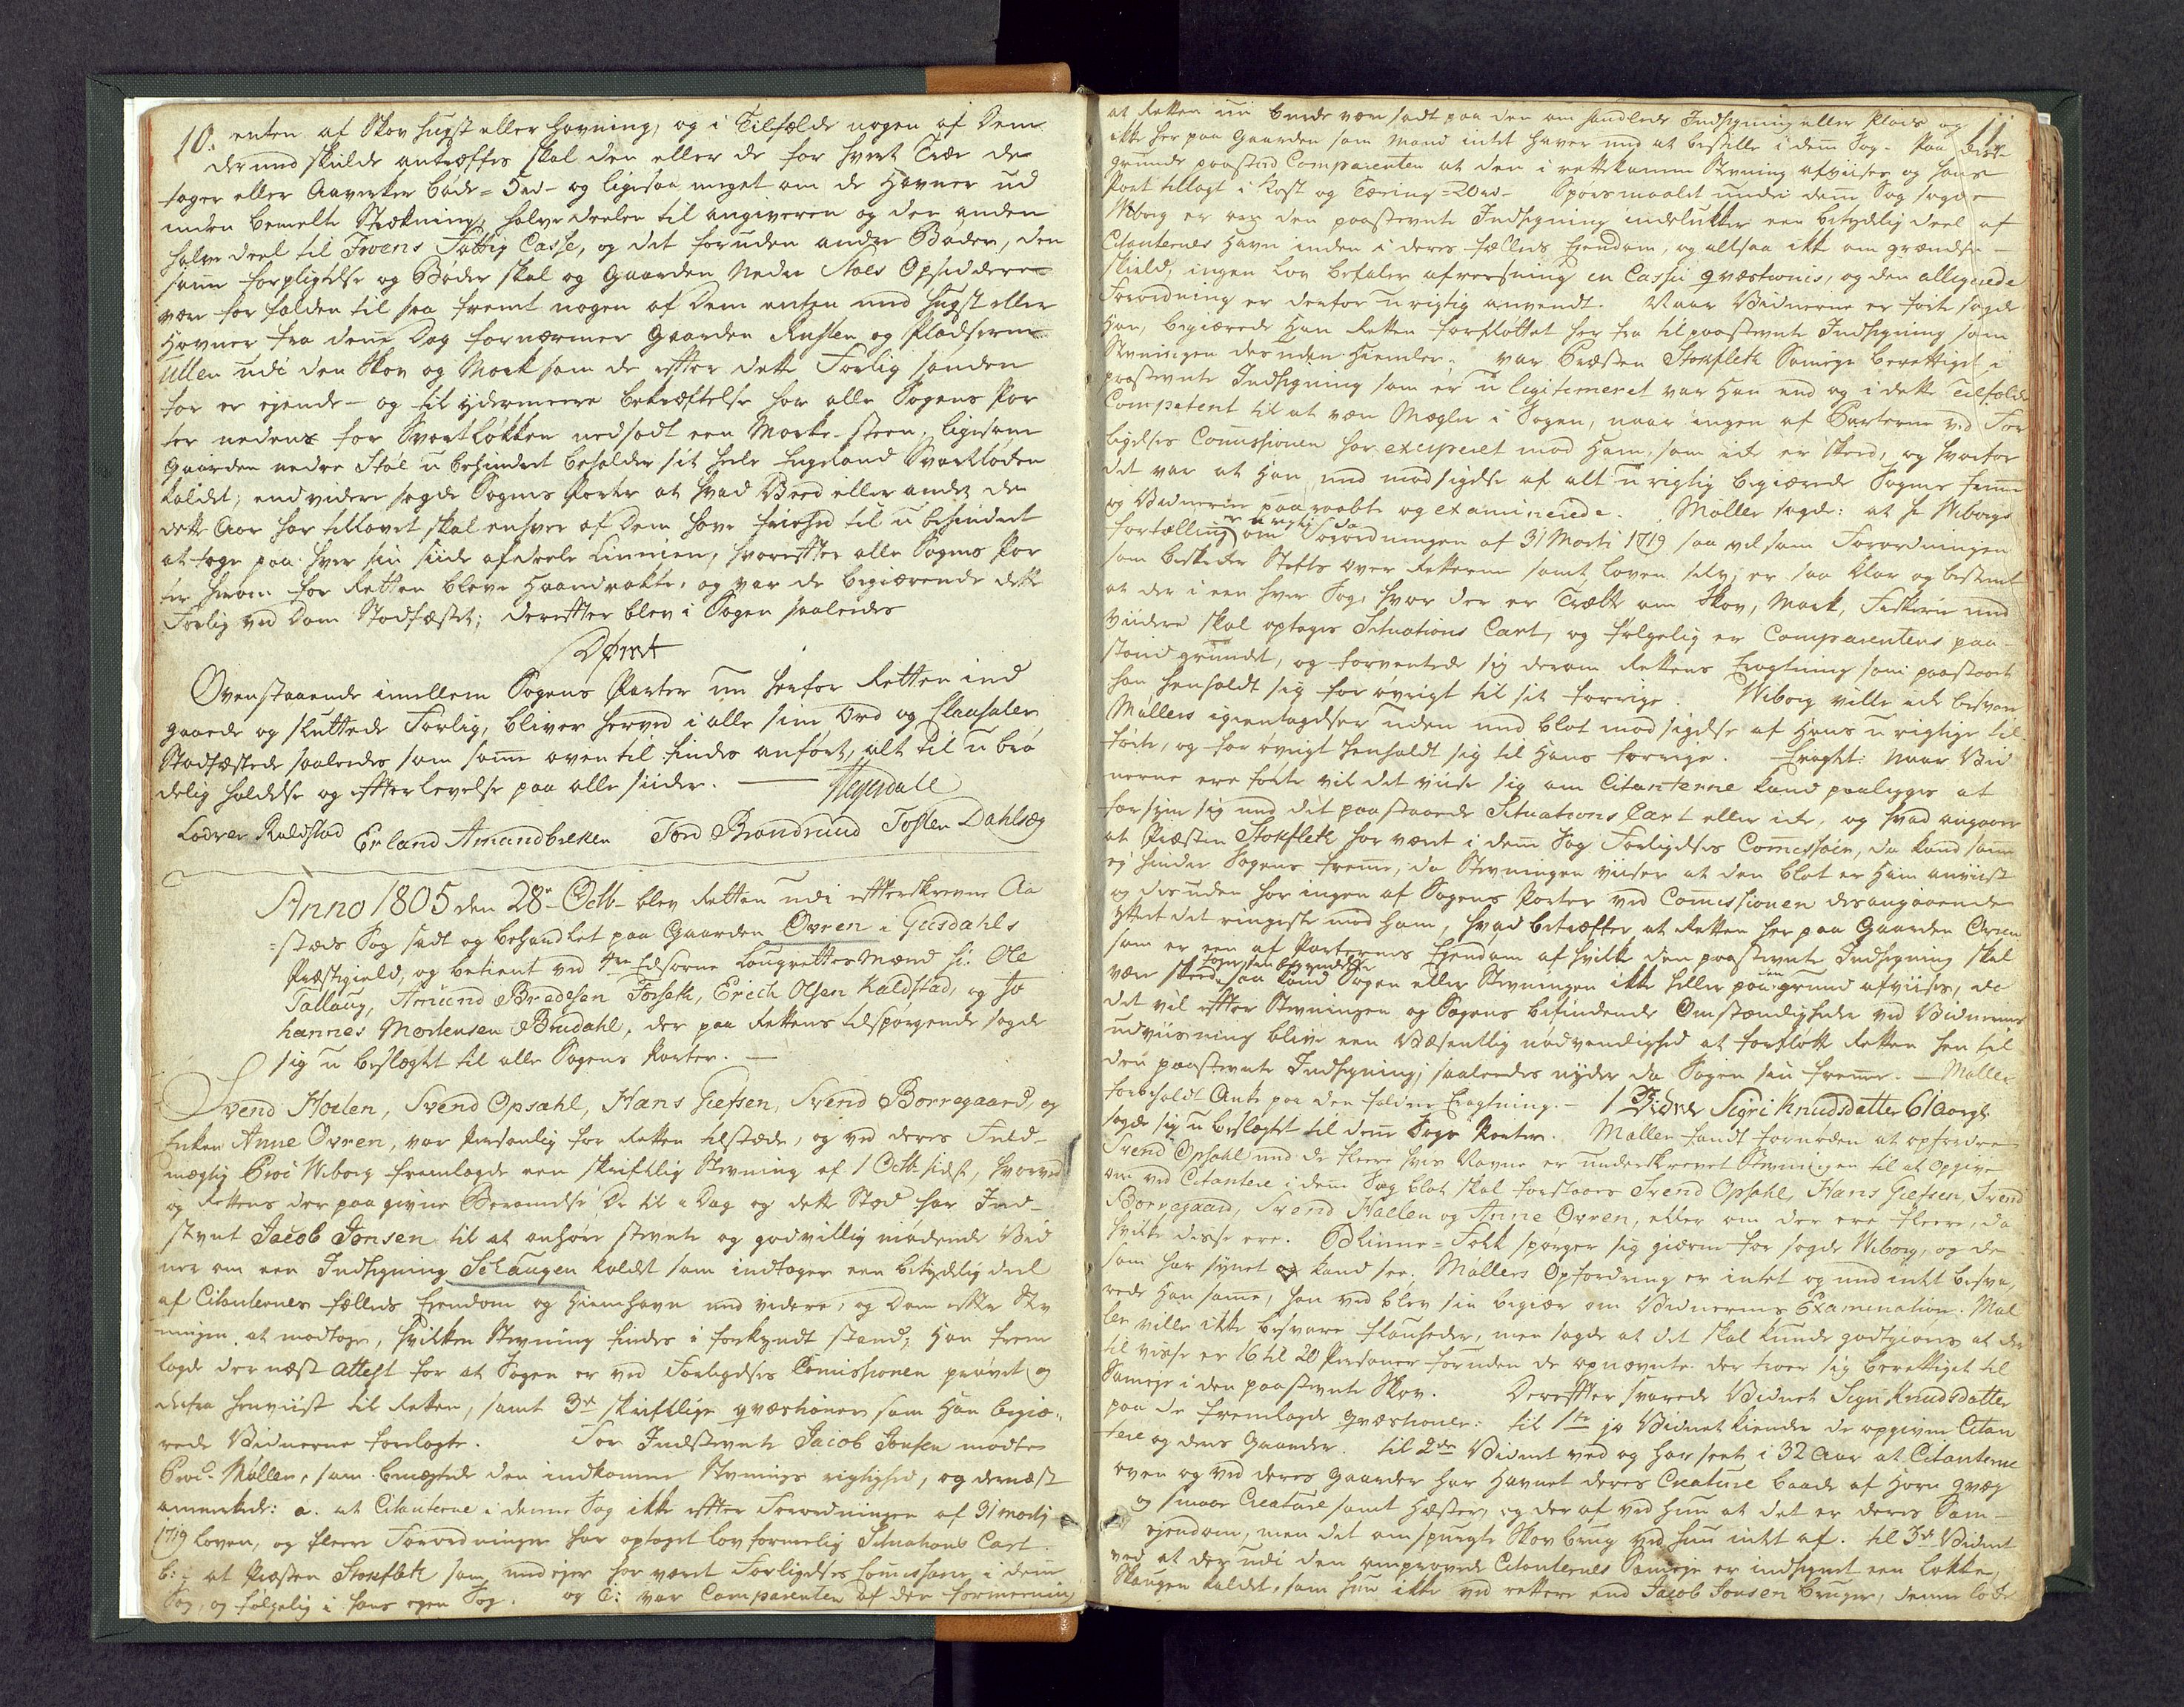 10. enten af Skov hugst eller Havning, og i Tilfælde nogen af Dem
der med skulde antræffes skal den eller de for hvert Træe de
tager eller Aavirker bøde = 5 rd - og ligesaa meget om de Havner ud
inden bemelte Strækning, halve deelen til angiveren og den anden
halve deel til Froens Fattig Casse, og det foruden andre Bøder, den
samme forpligtelse og Bøder skal og Gaarden Nedre Støes Opsiddere
være for falden til saa fremt nogen af Dem enten med hugst eller
Havner fra denne Dag fornærmer Gaarden Rusten og Pladserne
Ullen udi den Skov og Mark som de efter dette Forlig sanden
for er eyende - og til ydermeere bekræftelse har alle Sagens Par
ter nedenf for Svartløkken nedsadt een Marke-steen, ligesom
Gaarden nedre Støe u behindret beholder sit heele Engeland Svartløden
kaldet; end videre sagde Sagens Parter at hvad Veed eller andet de
dette Aar har tillavet skal enhver af Dem have friehed til u behindret
at tage paa hver sin siide af deele Linnien, hvorefter alle Sagens Par
ter herom for Retten bleve Haandrakte, og var de begiærende dette
Forlig ved Dom Stadfæstet; derefter blev i Sagen saaledes
Dømt
Ovenstaaende imellem Sagens Parter nu her for Retten ind
gaaede og sluttede Forlig, bliver herved i alle sine Ord og Clausuler
Stadfæstede saaledes som samme oven til findes anført, alt til u brø
delig holdelse og efterlevelse paa alle siider. —
Lodver Kaldstad Erland Amundbakken Tord Brandrund Tosten Dahlseg
Anno 1805 den 28de Octb. blev Retten udi efterskrevne Aa
=stæds Sag sadt og behandlet paa Gaarden Øvren i Gusdahls
Præstegield, og betient ved 4re Edsorne Laugrettes Mænd h: Ole
Tallaug, Amund Bredesen Forseth, Erich Olsen Kaldstad, og Jo
hannes Mortensen Brudahl, der paa Rettens tilspørgende sagde
sig u beslægtet til alle Sagens Parter. —
Svend Hoelen, Svend Opsahl, Hans Giefsen, Svend Borregaard, og
Enken Anne Øvren, var Personlig for Retten tilstæde, og ved deres Fuld-
mægtig Proc Wiborg fremlagde een skriftlig Stevning af 1 Octb: sidst, hvorved
og Rettens der paa givne Berammelse De til i Dag og dette Stæd har Ind-
stevnt Jacob Jonsen til at anhøre stevnte og godvillig mødende Vid
ner om een Indhegning Schaugen kaldet som indtager een betydelig deel
af Citanternes fælleds Eyendom og Hiemhavn med videre, og Dom efter Ste
vningen at modtage, hvilken Stevning findes i forkyndt stand, Han frem
lagde der næst Attest for at Sagen er ved Forligelses Comissionen prøvet og
derfra henviist til Retten, samt 3de skriftlige qvæstioner som Han begiæ-
rede Vidnerne forelagte. For Indstevnte Jacob Jonsen mødte
Proc: Møller, som benegtede den indkomne Stevnings rigtighed, og dernæst
anmerkede: a. at Citanterne i denne Sag ikke efter Forordningen af 31 Marti
1719 Loven, og fleere Forordninger har optaget lov formelig Situations Cart.
b: at Præsten Stoxfleth som med eyer har været Forligelses Comissair i denne
Sag, og følgelig i hans egen Sag. og C: var Comparenten af den formeening
11.
at Retten nu burde være sadt paa den om handlede Indhegning eller Plads og
ikke her paa Gaarden som Mand intet haver med at bestille i denne Sag. Paa disse
grunde paastod Comparenten at den i rettekomne Stevning afviises og hans
Part tillagt i Kost og Tæring = 20 rd - Spørsmaalet under denne Sag sagde
Wiborg er om den paastevnte Indhegning indelukker een betydelig deel af
Citanternes Havn inden i deres fælleds Eyendom, og altsaa ikke om grændse-
skield, ingen Lov befaler afreesning in Cassu qvæstionis, og den allegerede
Forordning er derfor urigtig anvendt. Naar Vidnerne er førte sagde
Han, begiærede Han Retten forfløttet her fra til paastevnte Indhegning som
Stevningen desuden Hiemler. var Præsten Stoxfleth Sameye berettiget i
paastevnte Indhegning som er u legitimeret var Han end og i dette Tilfælde
Competent til at være Mægler i Sagen, naar ingen af Parterne ved For
ligelses Comissionen har exciperet mod Ham, som ikke er skeed, og hvorfor
det var at Han med modsigelse af alt urigtig begiærede Sagens fremme
og Vidnerne paaraabt og examinerede. Møller sagde: at h Wiborgs
fortælling er urigtig da om Forordningen af 31 Marti 1719 saa vel som Forordningen
som beskikker Stifts Over Retterne samt Loven selv, er saa klar og bestemt
at der i een hver Sag, hvor der er Trætte om Skov, Mark, Fiskerie med
viidere skal optages Situations Cart, og følgelig er Comparentens paa-
stand grundet, og forventede sig derom Rettens Eragtning som paastaaet
han henholdt sig for øvrigt til sit forrige. Wiborg ville ikke besvare
Møllers igientagelser uden med blot modsigelse af Hans urigtige til
førte, og for øvrigt henholdt sig til Hans forrige. Eragtet: Naar Vid
nerne ere førte vil det viise sig om Citanterne kand paalegges at
forsyne sig med det paastaaede Situations Cart eller ikke, og hvad angaaer
at Præsten Stoxfleth har været i denne Sag Forligelses Comissair, da kand samme
ej hindre Sagens fremme, da Stevningen viiser at den blot er Ham anviist
og desuden har ingen af Sagens Parter ved Comissionen desangaaende
yttret det ringeste mod ham, hvad betræffer at Retten her paa Gaarden Øvren
som er een af Parternes Eyendom af hvilke den paastevnte Indhegning skal
være skeed, saa kand Sagen eller Stevningen ikke heller paa den grund afviises, da
det vil efter Stevningen og Sagens befindende Omstændigheder ved Vidnernes
udviisning blive een Væsentlig nødvendighed at forfløtte Retten hen til
den paastevnte Indhegning, saaledes nyder da Sagen sin fremme. — Møller
forbeholdt Anke paa den faldne Eragtning. — 1te Vidne Sigri Knudsdatter 61 Aar gl
sagde sig u beslægtet til denne Sags Parter. Møller fandt fornøden at opfordre
Svend Opsahl med de fleere hvis Navne er underskrevet Stevningen til at opgive
om ved Citantere i denne Sag blot skal forstaaes Svend Opsahl, Hans Giefsen, Svend
Borregaard, Svend Haelen og Anne Øvren, eller om der ere fleere, da
hvilke disse ere. Blinne = Folk spørger sig gierne for sagde Wiborg, og de
som har synet og kand see, Møllers Opfordring er intet og med intet besva,
rede Han samme, han ved blev sin begiær om Vidnernes Examination. Møl
ler ville ikke besvare flauheder, men sagde at det skal kunde godtgiøres at der
til visse er 16 til 20 Personer foruden de opnævnte der troer sig berettiget til
Sameye i den paastevnte Skov. Derefter svarede Vidnet Sigri Knudsdatter
paa de fremlagde qvæstioner: til 1te ja Vidnet kiender de opgivne Citan
tere og deres Gaarder. til 2den Vidnet ved og har seet i 32 Aar at Citanterne
oven og ved deres Gaarder har Havnet deres Creature baade af Horn qvæg
og smaae Creature samt Hæster, og der af ved hun at det er deres Sam-
ejendom, men det om spurgte Skov brug ved hun intet af. til 3de Vidnet
ved at der udi den omprovede Citanternes Sameje er indhegnet een Løkke,
Skaugen kaldet, som hun ikke ved rettere end Jacob Jonsen bruger, denne Løkke